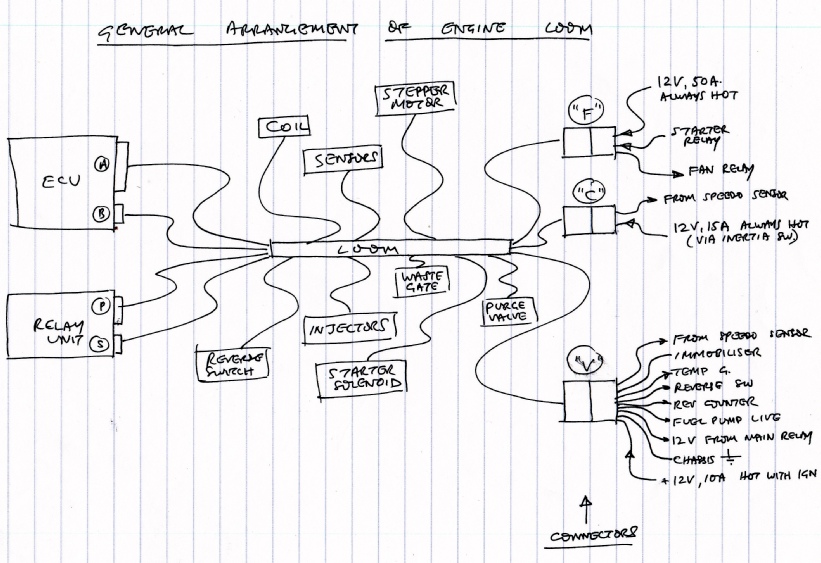 GENERAL ARRANGEMENT OF ENGINE LOOM
ECU
A
B
RELAY
UNIT
P
S
COIL
SENSORS
STEPPER
MOTOR
LOOM
REVERSE
SWITCH
INJECTORS
STARTER
SOLENOID
WASTE
GATE
PURGE
VALVE
"F"
12V, 50A.
ALWAYS HOT
STARTER
RELAY
FAN RELAY
"C"
FROM SPEEDO SENSOR
12V, 15A ALWAYS HOT
(VIA INERTIA SW)
"V"
FROM SPEEDO SENSOR
IMMOBILISER
TEMP G.
REVERSE SW
REV COUNTER
FUEL PUMP LIVE
12V FROM MAIN RELAY
CHASSIS
+ 12V, 10A HOT WITH IGN
CONNECTORS